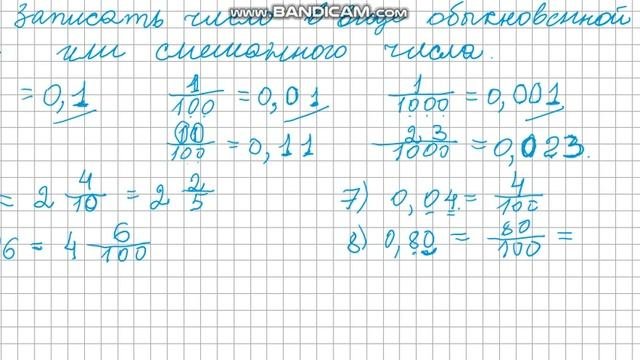 www.BANDICAM.com
Записать число в виде обыкновенной
или смешанного числа.
= 0,1 1/100 = 0,01 1/1000 = 0,001
11/100 = 0,11 23/1000 = 0,023.
= 2 4/10 = 2 2/5 7) 0,04 = 4/100
6 = 4 6/100 8) 0,80 = 80/100 =